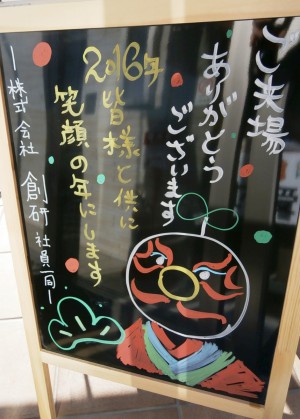 ご来場
ありがとう
ございます
2016年
皆様と供に
笑顔の年にします
ー株式会社 創研 社員一同ー